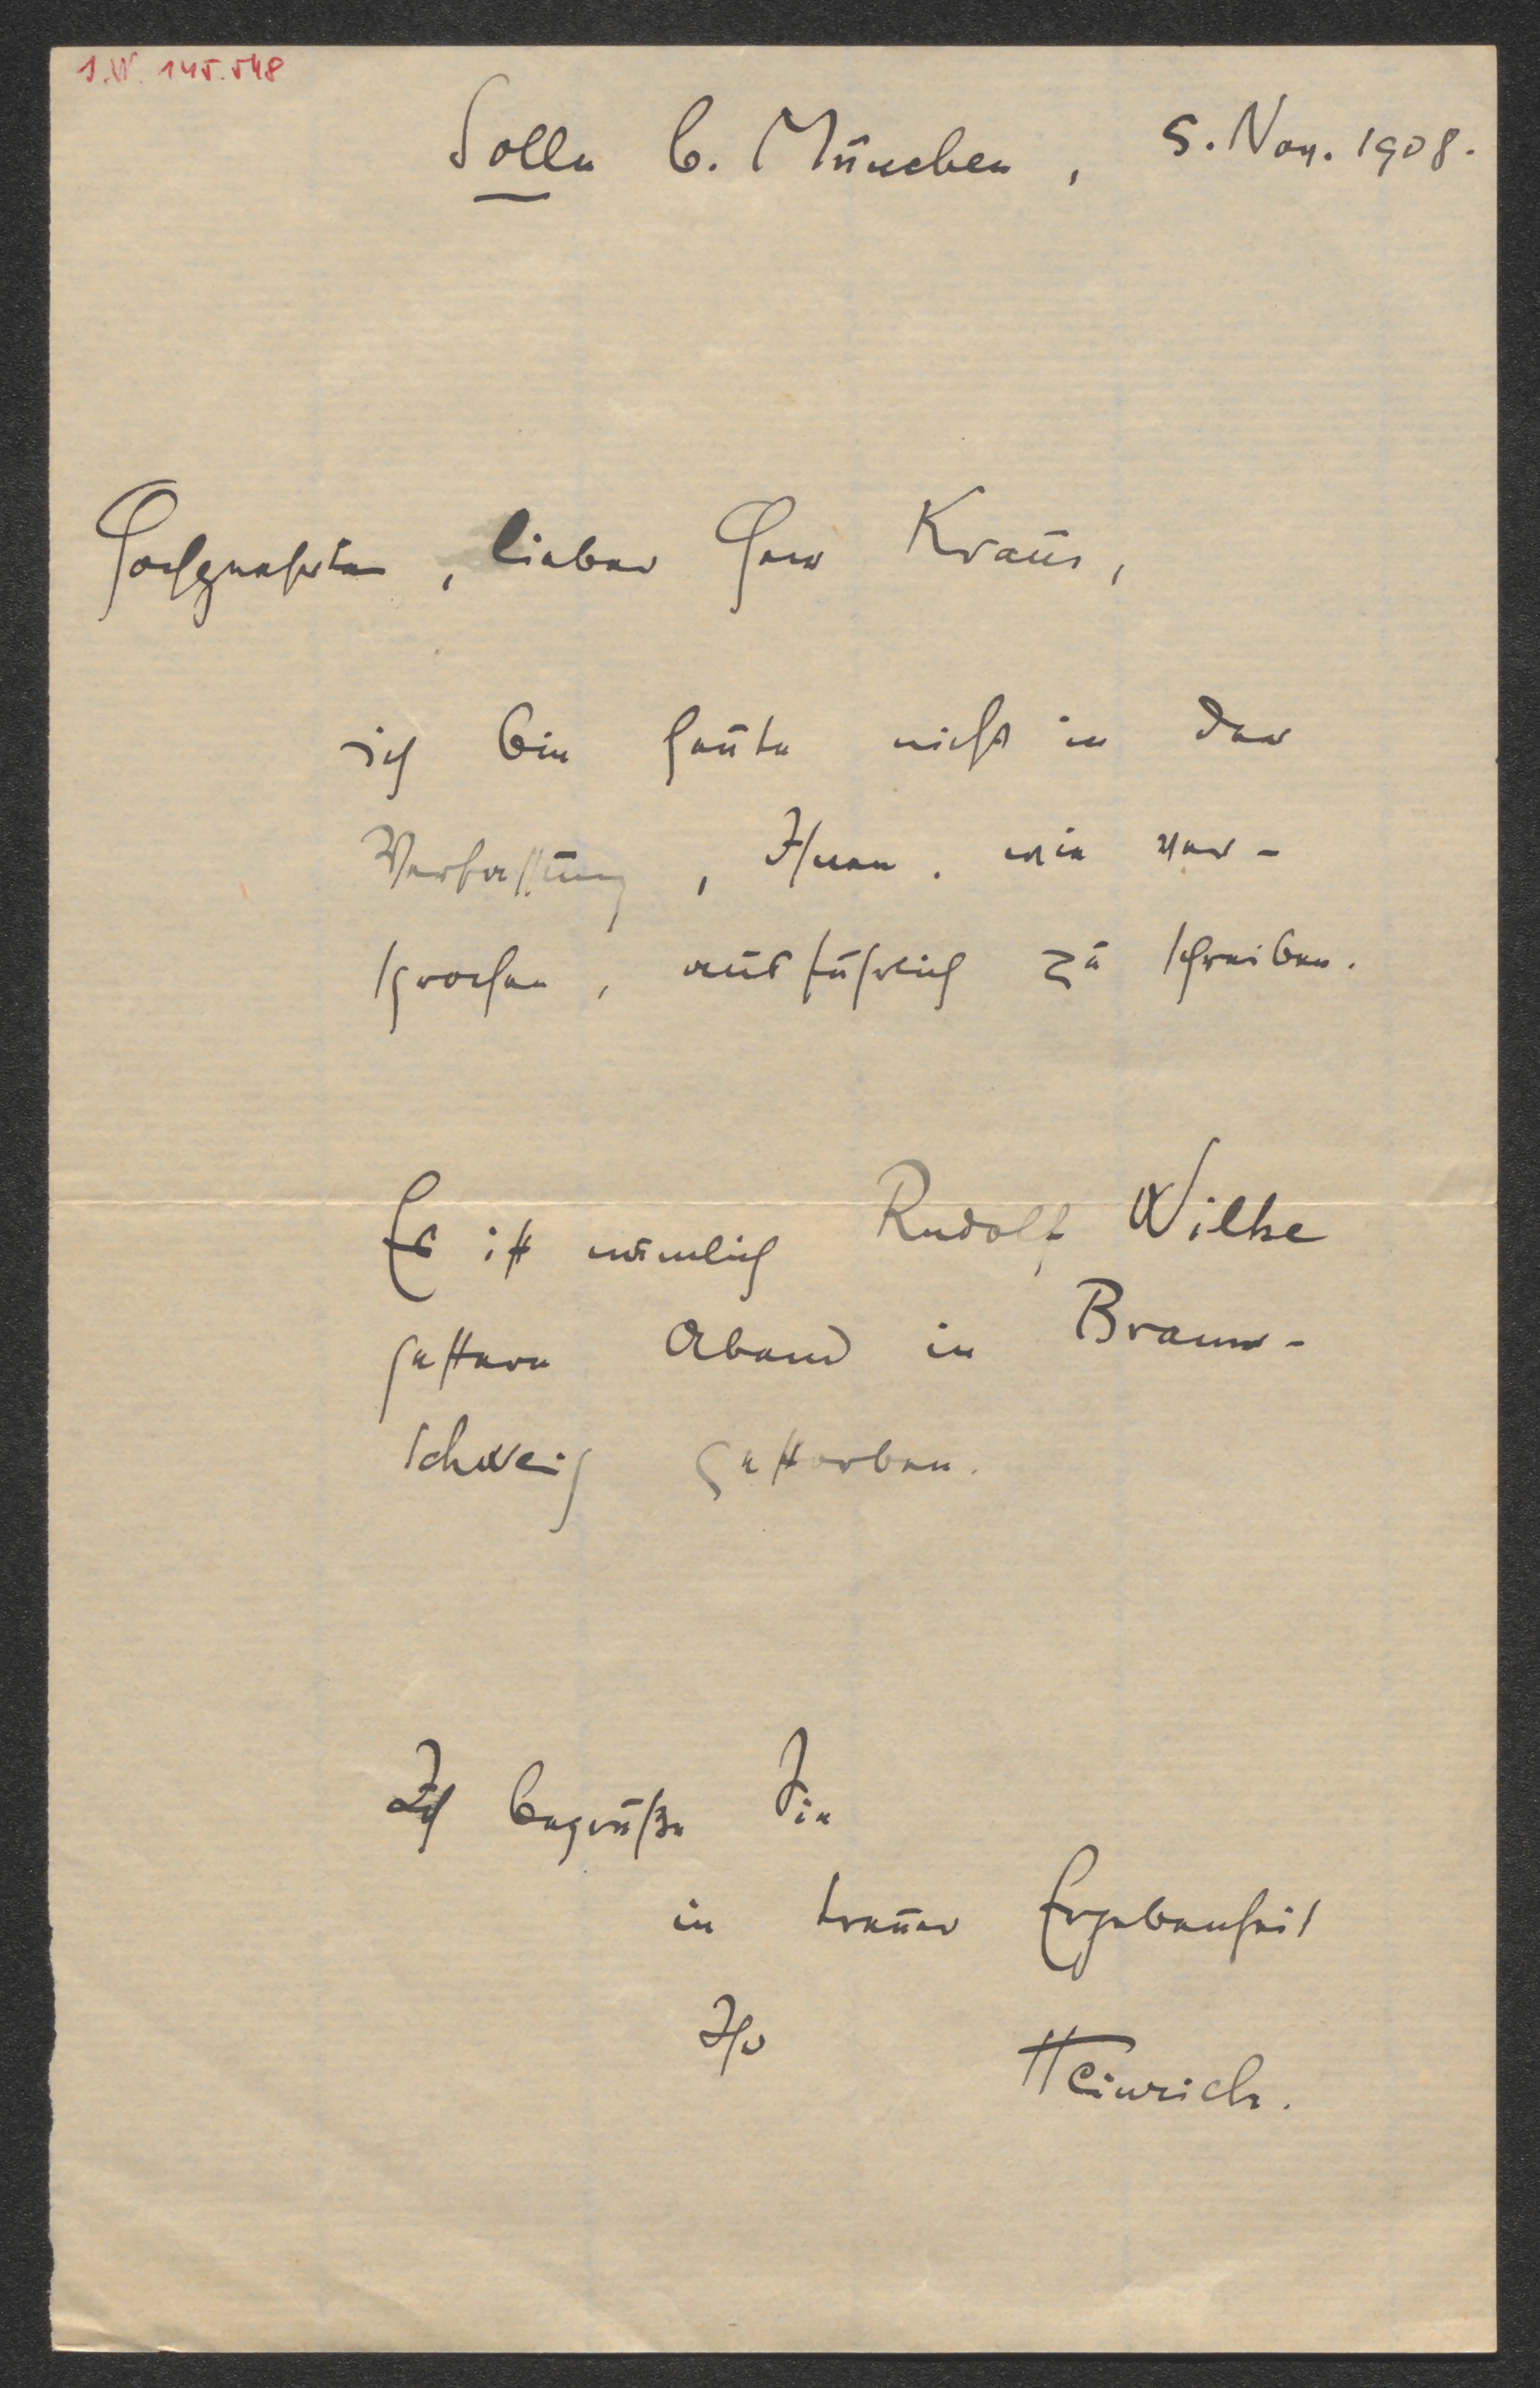 I.N. 145.548
Solln b. München, 5. Nov. 1908.
Hochgeehrter, lieber Herr Kraus,
ich bin heute nicht in der
Verfassung, Ihnen, wie ver-
sprochen, ausführlich zu schreiben.
Es ist nämlich Rudolf Wilke
gestern Abend in Braun-
schweig gestorben.
Ich begrüße Sie
in treuer Ergebenheit
Ihr Heinrich.